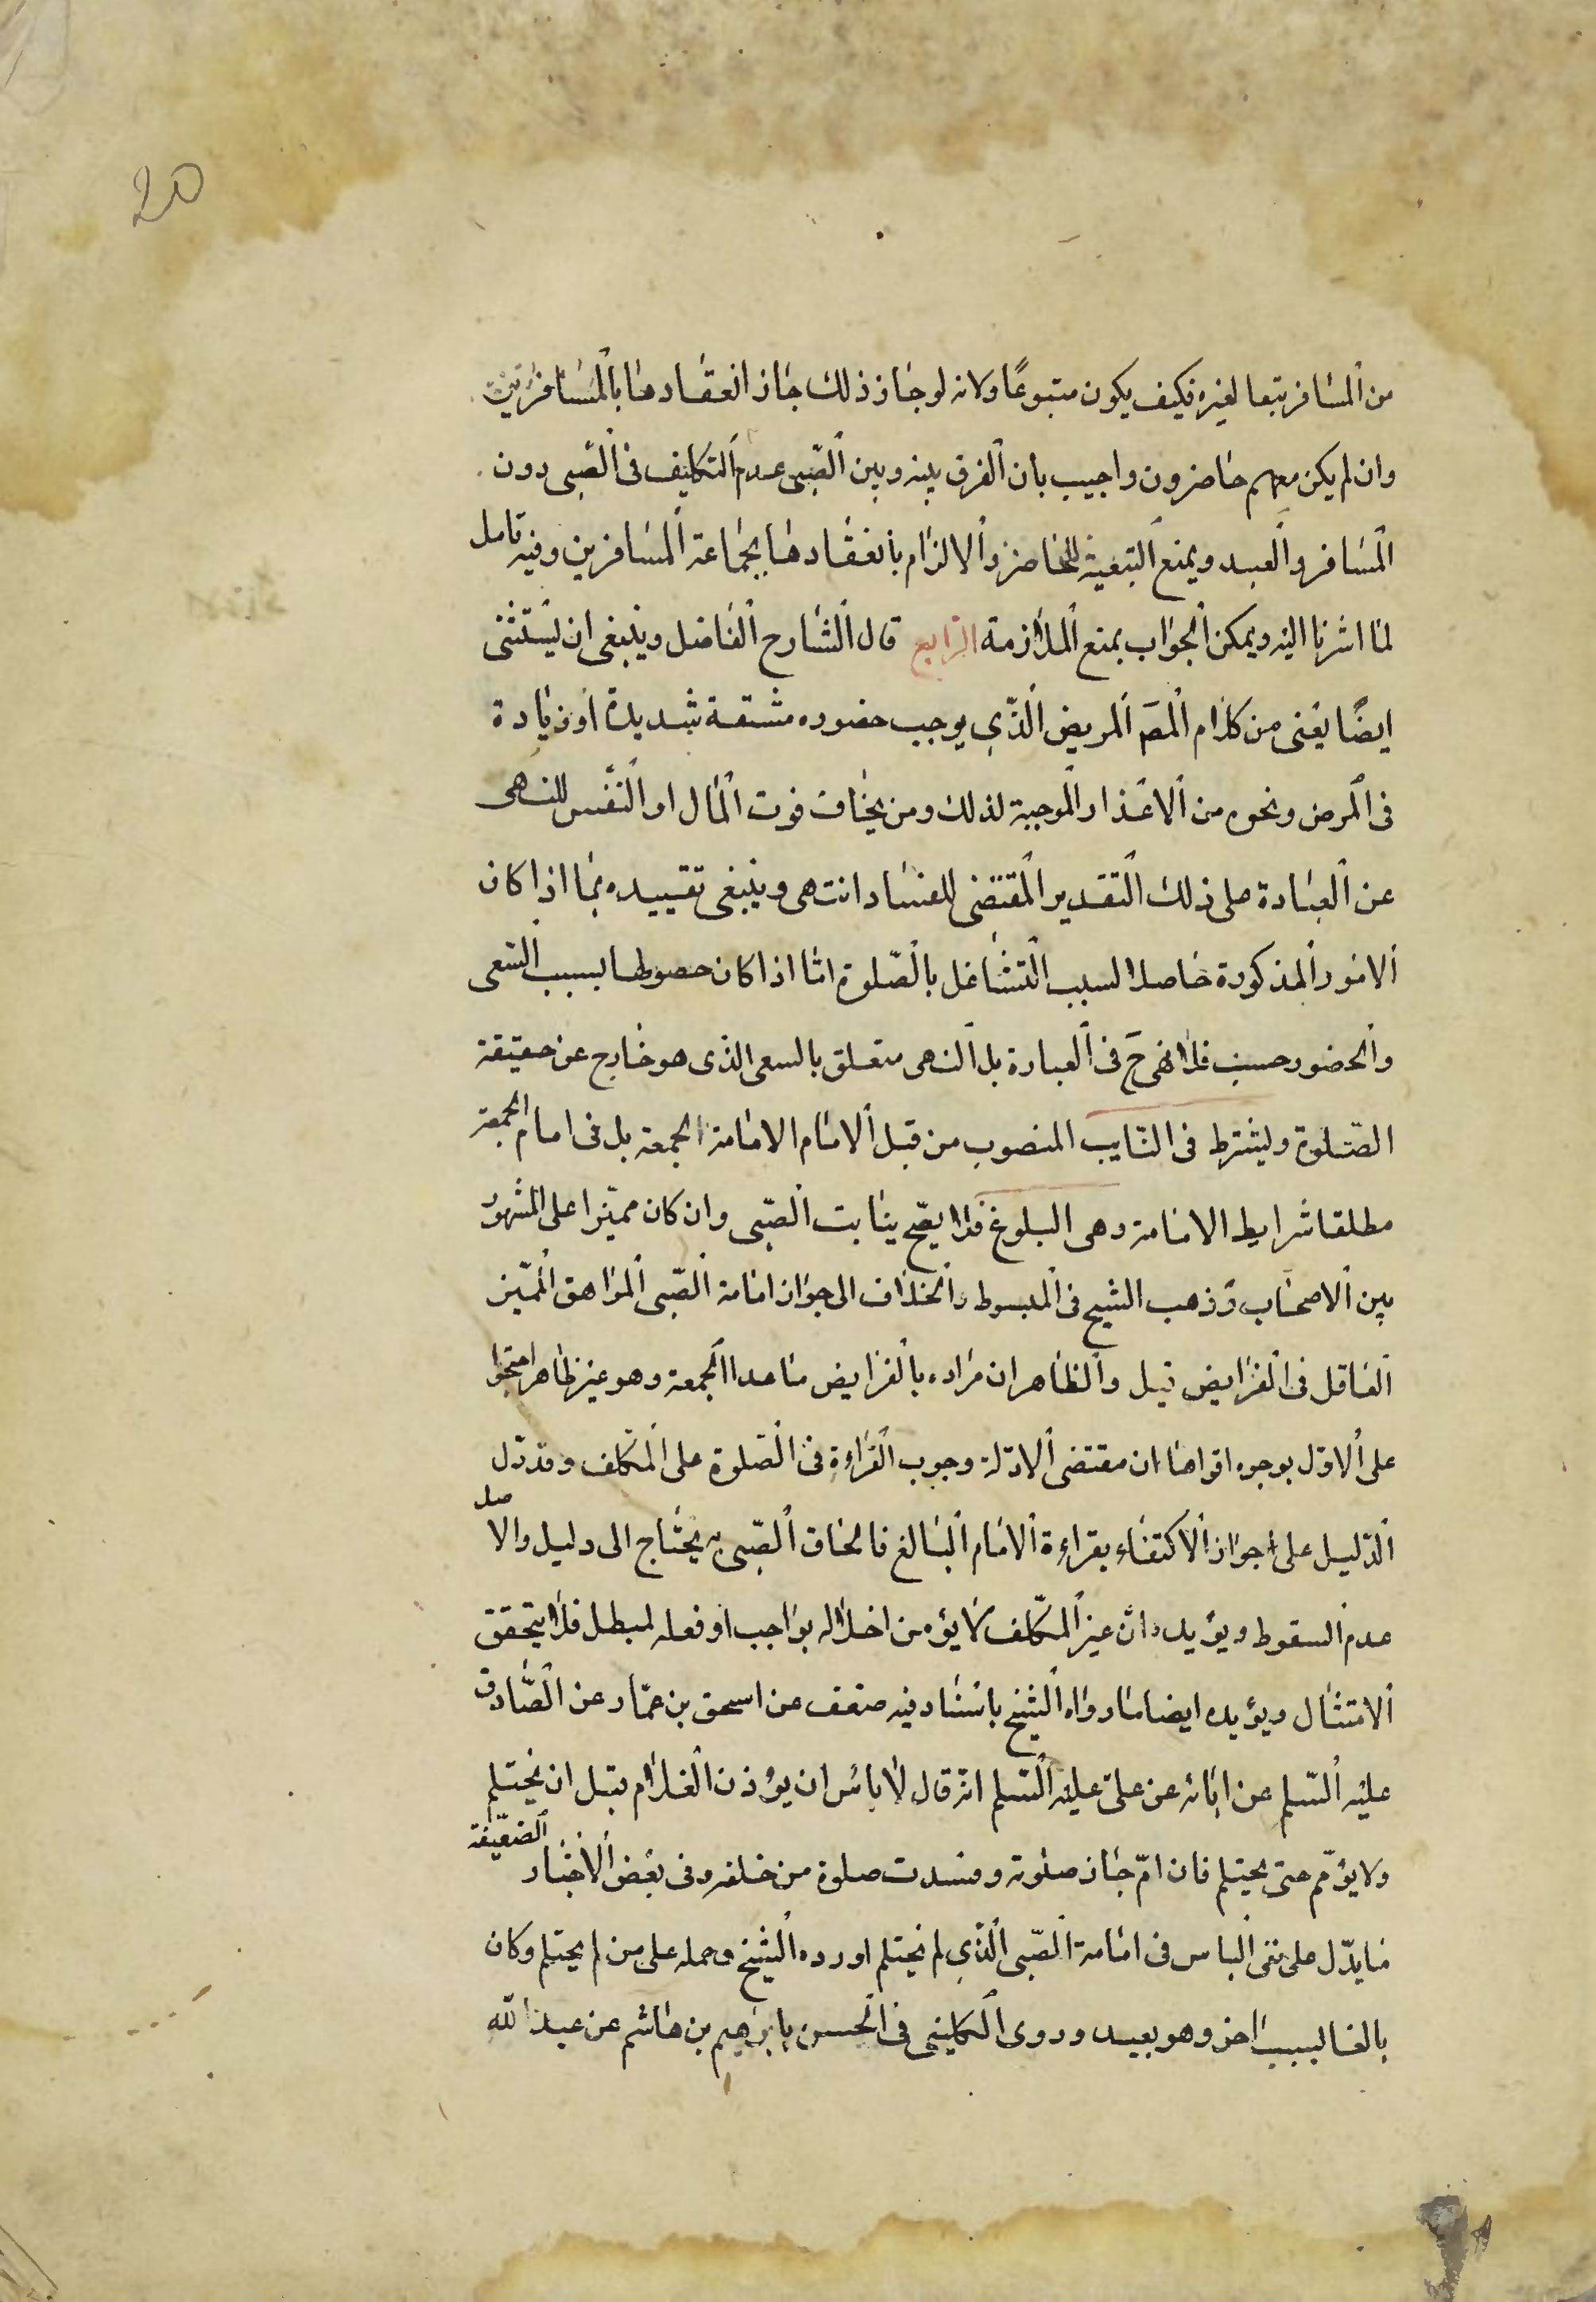 20
من المسافر تبعا لغيره فكيف يكون متبوعًا ولانه لو جاز ذلك جاز انعقادها بالمسافرين
وان لم يكن معهم حاضرون واجيب بان الفرق بينه وبين الصّبى عدم التكليف فى الصّبى دون
المسافر والعبد ويمنع التبعية للحاضر والالزام بانعقادها بجماعة المسافرين وفيه تامل
لما اشرنا اليه ويمكن الجواب بمنع الملازمة الرابع قال الشارح الفاضل وينبغى ان يستثنى
ايضًا يعنى من كلام المصَ المريض الّذى يوجب حضوره مشقة شديدة او زيادة
فى المرض ونحوه من الاعذار الموجبة لذلك ومن يخاف فوت المال او النّفس للنهى
عن العبادة على ذلك التقدير المقتضى للفساد انتهى وينبغى تقييده بما اذا كان
الامور المذكورة حاصلا لسبب التشاغل بالصّلوة امّا اذا كان حصولها بسبب السّعى
والحضور حسب فلا نهى حَ فى العبادة بل النهى متعلق بالسعى الذى هو خارج عن حقيقة
الصّلوة ويشترط فى النّايب المنصوب من قبل الامام الامامة الجمعة بل فى امام الجمعة
مطلقا شرايط الامامة وهى البلوغ فلا يصّح ينابت الصّبى وان كان مميّزا على المشهور
بين الاصحاب وذهب الشيخ فى المبسوط والخلاف الى جواز امامة الصّبى المراهق المميّز
العاقل فى الفرايض قيل والظاهر ان مراده بالفرايض ما عدا الجمعة وهو غير ظاهر احتجوا
على الاوّل بوجوه اقواها ان مقتضى الادّلة وجوب القراءة فى الصّلوة على المكّلف وقد دّل
الدّليل على جواز الاكتفاء بقراءة الامام البالغ فالحاق الصّبى به يحتاج الى دليل والاصل
عدم السقوط ويؤيده انّ غير المكّلف لا يؤمن اخلاله بواجب او فعله لمبطل فلا يتحقق
الامتثال ويؤيده ايضا ما رواه الشيخ باسناد فيه ضعف عن اسحق بن عمّار عن الصّادق
عليه السّلم عن ابائه عن علىّ عليه السّلم انّه قال لا باس ان يؤذن الغلام قبل ان يحتلم
ولا يؤمّ حتى يحتلم فان امّ جاز صلوته وفسدت صلوة من خلفه وفى بعض الاخبار الضعيفة
ما يدّل على نفى الباس فى امامة الصّبى الّذى لم يحتلم اورده الشيخ وحمله على من لم يحتلم وكان
بالغا لسبب اخر وهو بعيد وروى الكلينى فى الحسن بابرهيم بن هاشم عن عبد الله